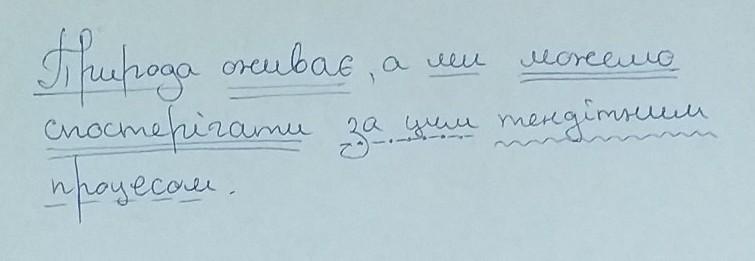 Природа оживає, а ми можемо
спостерігати за цим тендітним
процесом.